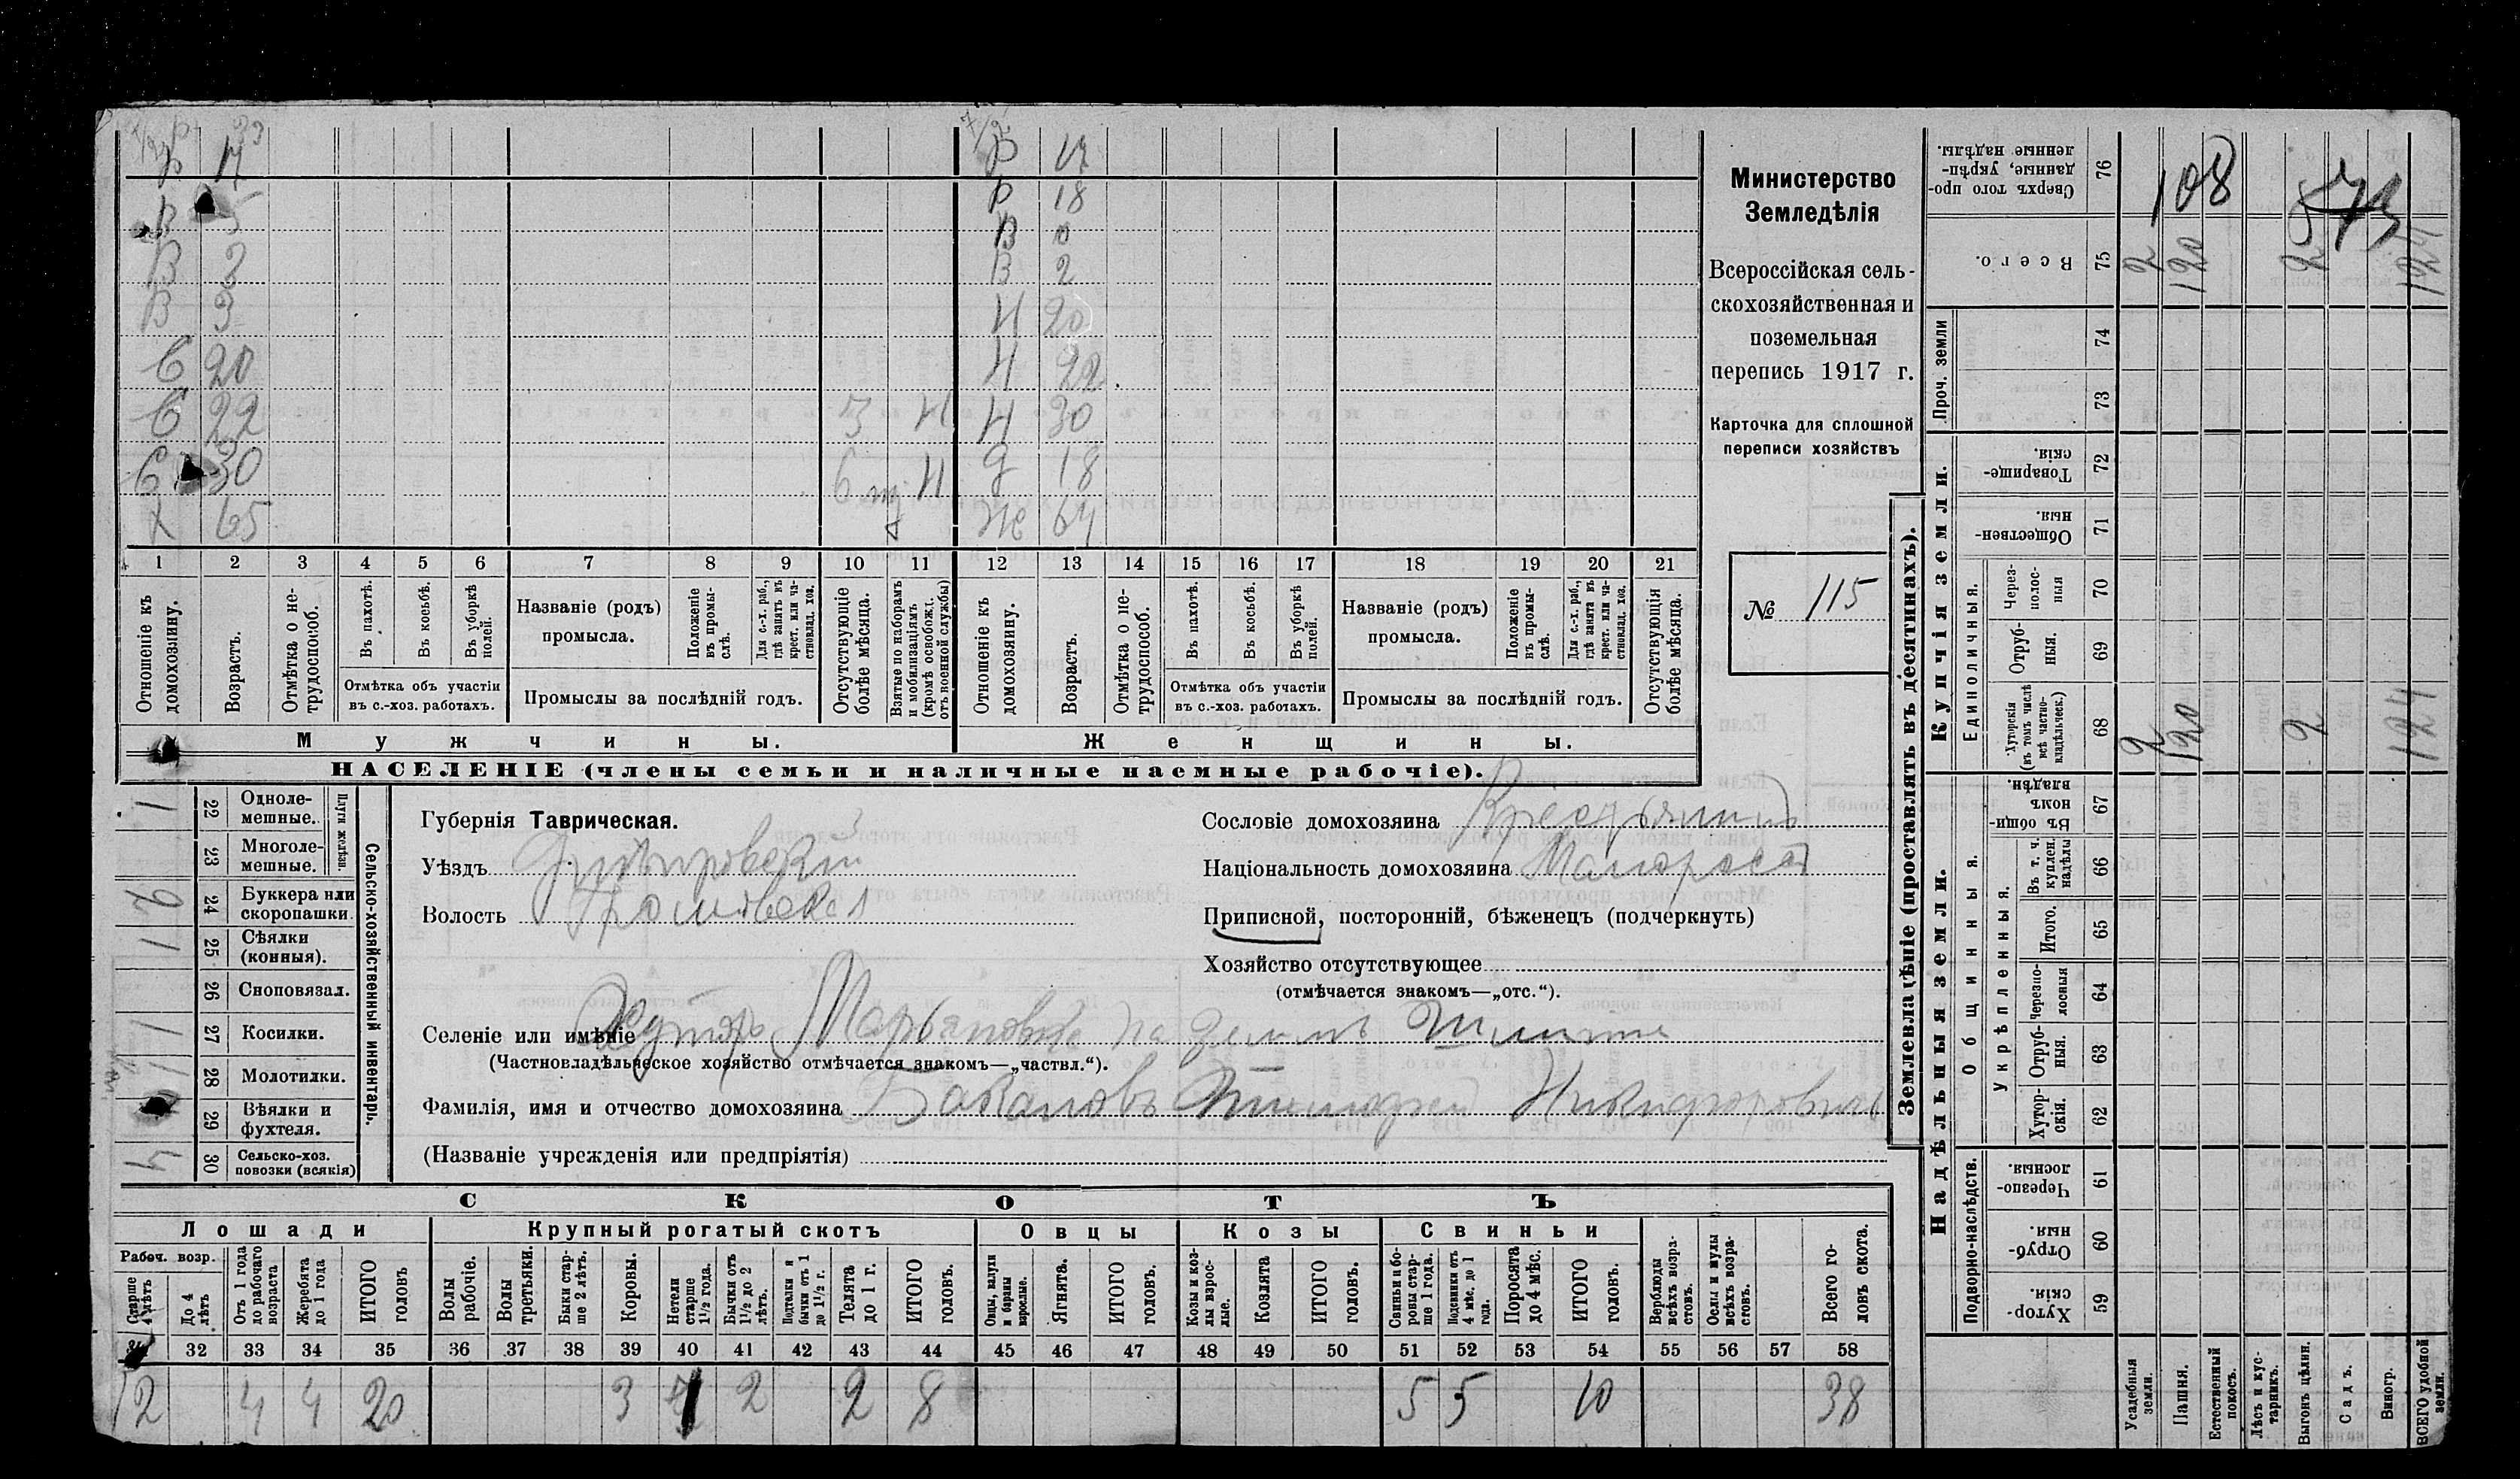 р 33
р 17
В 5
В 2
В 3
С 20
С 22 3 Н
С 30 6 Н
Х 65
р 17
р 18
В 0
В 2
Н 20
Н 22
Н 30
д 18
Же 64
1 2 3 4 5 6 7 8 9 10 11 12 13 14 15 16 17 18 19 20 21
Отношеніе къ домохозяину.
Возрастъ.
Отмѣтка о нетрудоспособ.
Въ пахотѣ.
Въ косьбѣ.
Въ уборкѣ полей.
Отмѣтка объ участіи въ с.-хоз. работахъ.
Названіе (родъ) промысла.
Положеніе въ промыслѣ.
Для с.-х. раб., гдѣ занятъ въ крест. или частновлад. хоз.
Промыслы за послѣдній годъ.
Отсутствующіе болѣе мѣсяца.
Взятые по наборамъ и мобилизаціямъ (кромѣ освобожд. отъ военной службы)
Отношеніе къ домохозяину.
Возрастъ.
Отмѣтка о нетрудоспособ.
Въ пахотѣ.
Въ косьбѣ.
Въ уборкѣ полей.
Отмѣтка объ участіи въ с.-хоз. работахъ.
Названіе (родъ) промысла.
Положеніе въ промыслѣ.
Для с.-х. раб., гдѣ занята въ крест. или частновлад. хоз.
Промыслы за послѣдній годъ.
Отсутствующія болѣе мѣсяца.
Мужчины.
Женщины.
НАСЕЛЕНІЕ (члены семьи и наличные наемные рабочіе).
Министерство
Земледѣлія
Всероссійская сель-
скохозяйственная и
поземельная
перепись 1917 г.
Карточка для сплошной
переписи хозяйствъ
№ 115
Сельско-хозяйственный инвентарь.
Плуги желѣзн.
1 22 Однолемешные.
23 Многолемешные.
2 24 Буккера или скоропашки.
1 25 Сѣялки (конныя).
26 Сноповязал.
1 27 Косилки.
1 28 Молотилки.
29 Вѣялки и фухтеля.
4 30 Сельско-хоз. повозки (всякія)
Губернія Таврическая.
Уѣздъ Днѣпровскій 3
Волость Громовская
Сословіе домохозяина Крестьянинъ
Національность домохозяина Малороссъ
Приписной, посторонній, бѣженецъ (подчеркнуть)
Хозяйство отсутствующее
(отмѣчается знакомъ—„отс.“).
Селеніе или имѣніе Хуторъ Марьяновка на землѣ
(Частновладѣльческое хозяйство отмѣчается знакомъ—„частвл.“).
Фамилія, имя и отчество домохозяина Бакановъ Тимофей Никифоровичъ
(Названіе учрежденія или предпріятія)
СКОТЪ
Лошади
Крупный рогатый скотъ
Овцы
Козы
Свиньи
Рабоч. возр.
Старше 4 лѣтъ
До 4 лѣтъ
Отъ 1 года до рабочаго возраста
Жеребята до 1 года
ИТОГО головъ
Волы рабочіе.
Волы третьяки.
Быки старше 2 лѣтъ.
Коровы.
Нетели старше 1½ года.
Бычки отъ 1½ до 2 лѣтъ.
Подтелки и бычки отъ 1 до 1½ г.
Телята до 1 г.
ИТОГО головъ.
Овцы, валухи и бараны взрослые.
Ягнята.
ИТОГО головъ.
Козы и козлы взрослые.
Козлята
ИТОГО головъ.
Свиньи и боровы старше 1 года.
Подсвинки отъ 4 мѣс. до 1 года.
Поросята до 4 мѣс.
ИТОГО головъ.
Верблюды всѣхъ возрастовъ.
Ослы и мулы всѣхъ возрастовъ.
Всего головъ скота.
32 33 34 35 36 37 38 39 40 41 42 43 44 45 46 47 48 49 50 51 52 53 54 55 56 57 58
12 4 4 20 3 1 2 2 8 5 5 10 38
Землевладѣніе (проставлять въ десятинахъ).
Купчія земли.
Надѣльныя земли.
Проч. земли
Единоличныя.
Общинныя.
Укрѣпленныя.
Подворно-наслѣдств.
76 Сверхъ того проданные, укрѣпленные надѣлы. 108
75 Всего. 2 120 2 124
74
73
72 Товарищескія.
71 Общественныя.
70 Черезполосныя
69 Отрубныя.
68 Хуторскія (въ томъ числѣ всѣ частновладѣльческ.) 2 120 2 124
67 Въ общинномъ владѣн.
66 Въ т. ч. куплен. надѣлы
65 Итого.
64 Черезполосныя
63 Отрубныя.
62 Хуторскія.
61 Черезполосныя.
60 Отрубныя.
59 Хуторскія.
Усадебныя земли.
Пашня.
Естественный покосъ.
Лѣсъ и кустарникъ.
Выгонъ цѣлин.
Садъ.
Виногр.
ВСЕГО удобной земли.